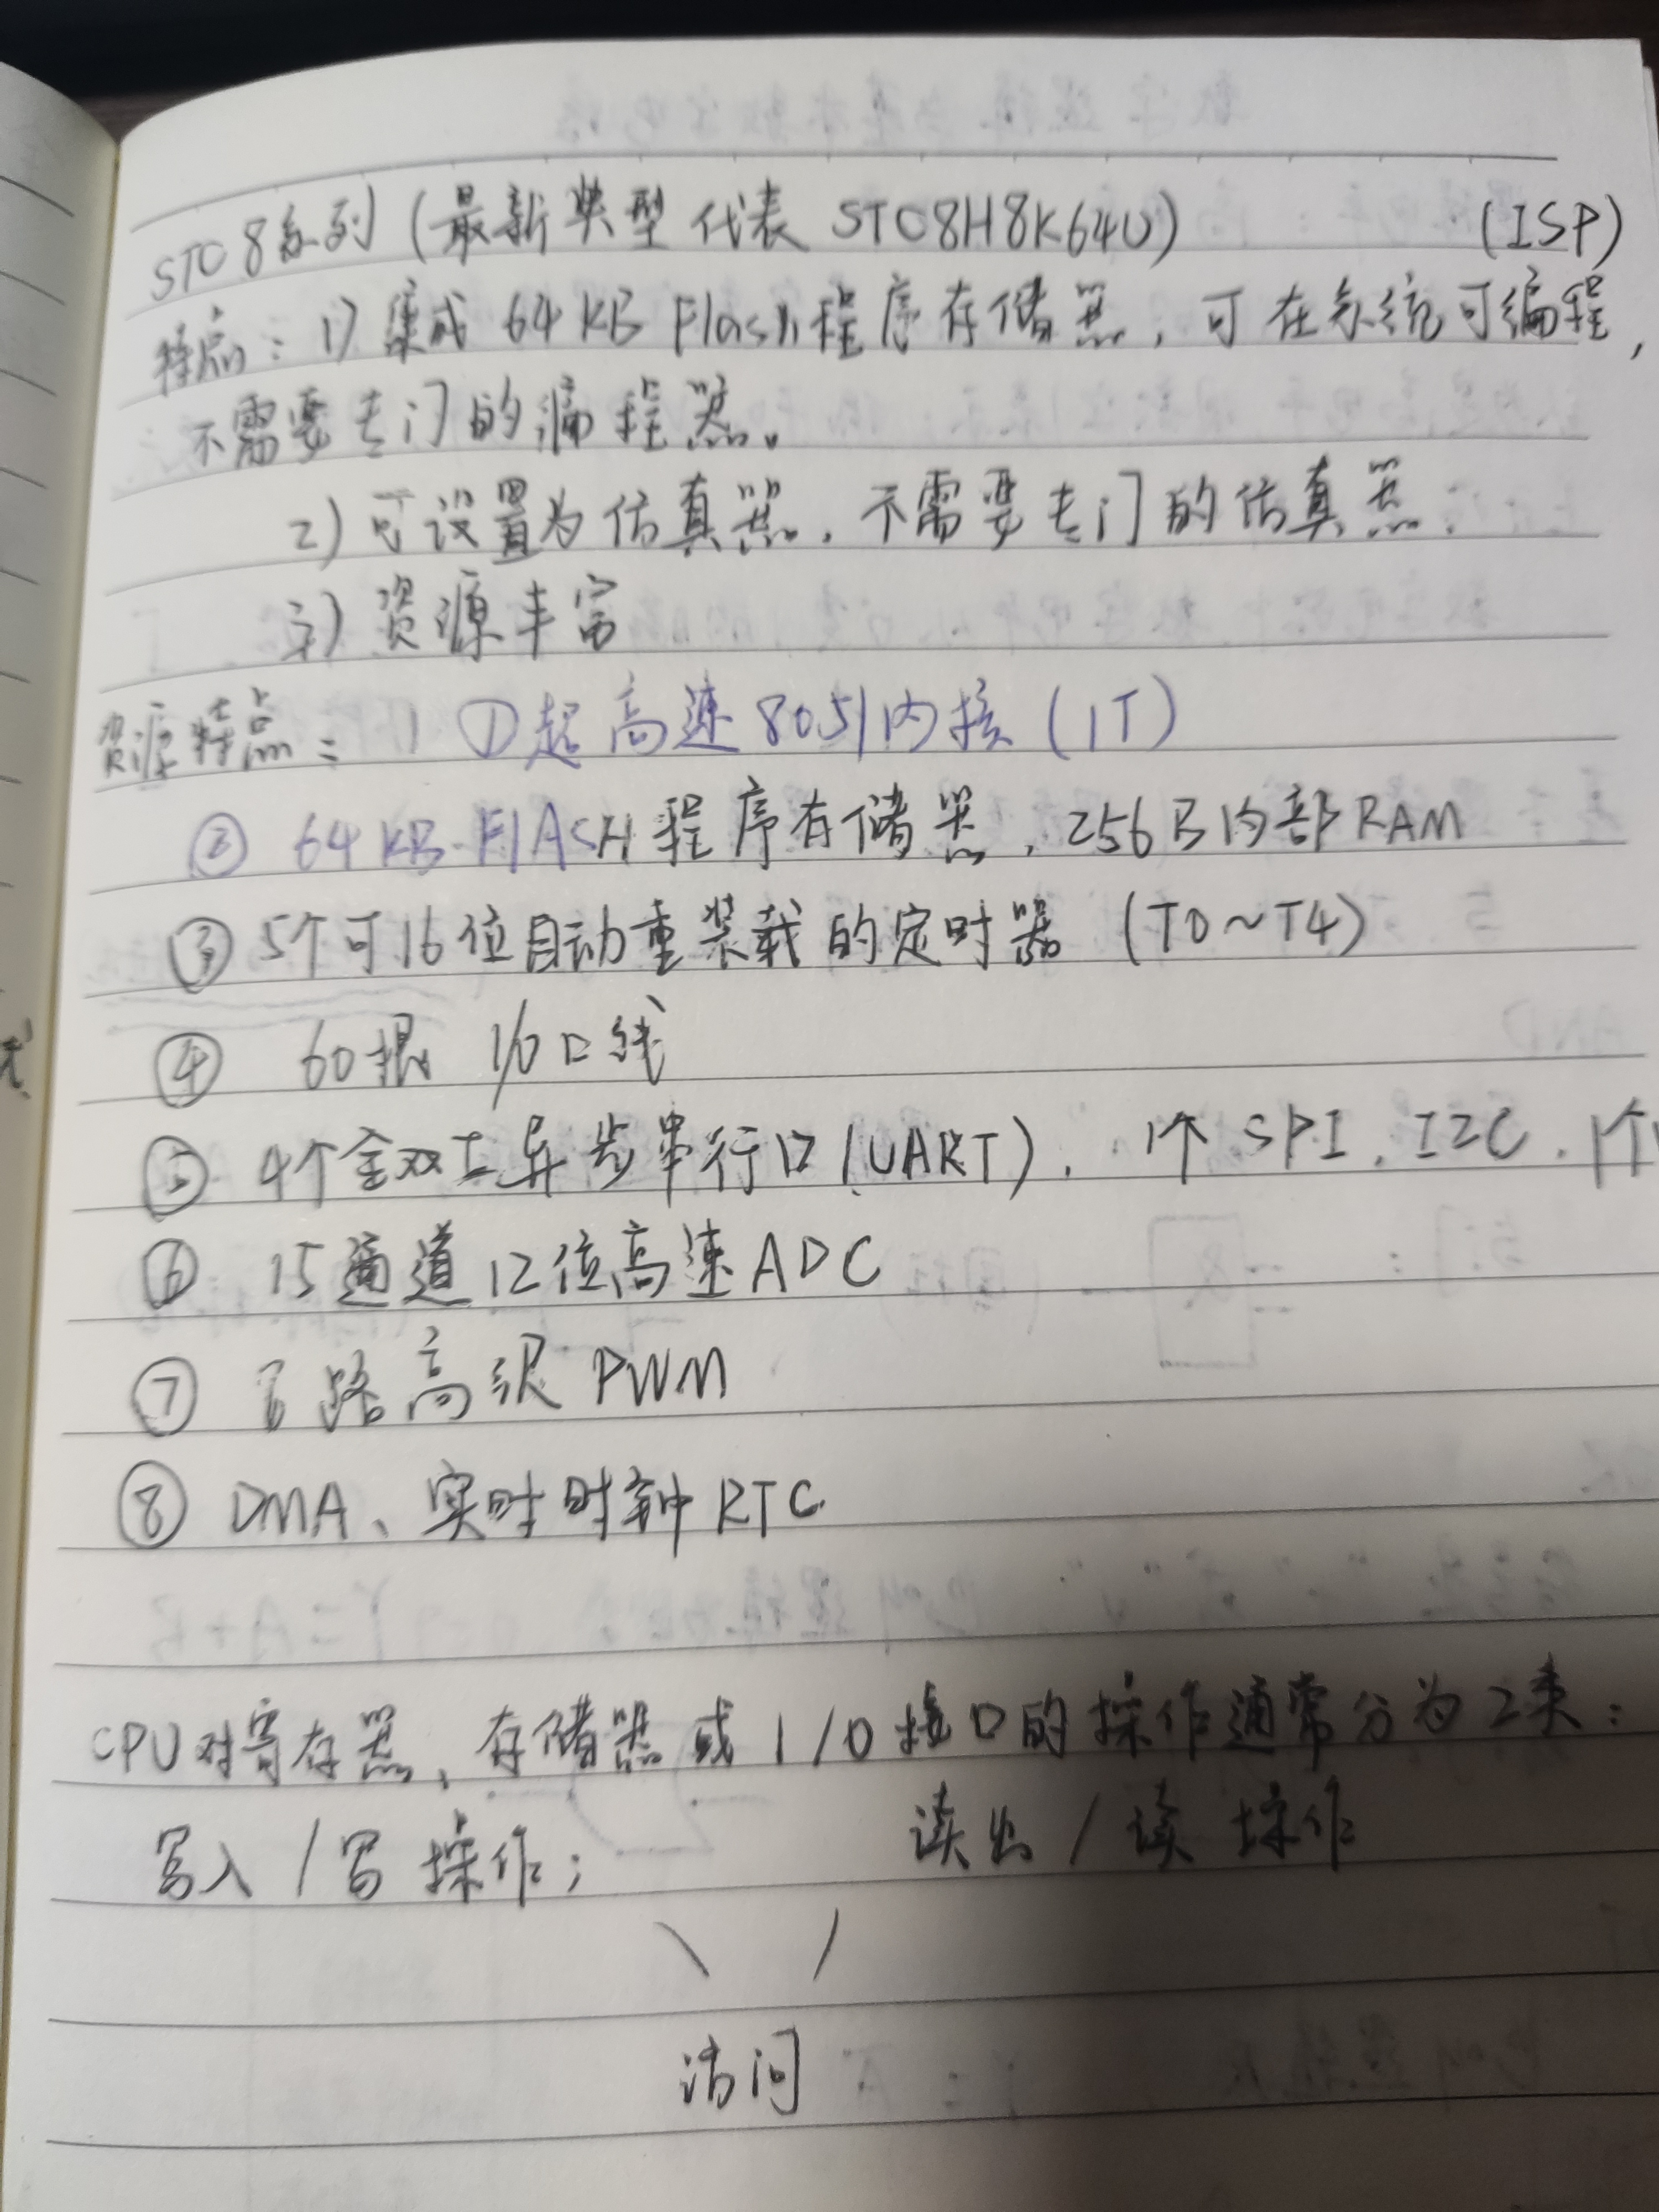 STC8系列(最新典型代表 STC8H8K64U) (ISP)
特点:1)集成 64KB Flash程序存储器,可在系统可编程,
不需要专门的编程器。
2)可设置为仿真器,不需要专门的仿真器;
3)资源丰富
资源特点: ①超高速8051内核(1T)
② 64KB FlASH程序存储器,256B内部RAM
③ 5个可16位自动重装载的定时器 (T0~T4)
④ 60根 I/O口线
⑤ 4个全双工异步串行口(UART), 1个 SPI, I2C, 1个
⑥ 15通道12位高速ADC
⑦ 8路高级PWM
⑧ DMA、实时时钟RTC
CPU对寄存器、存储器或I/O接口的操作通常分为2类:
写入/写操作; 读出/读操作
访问